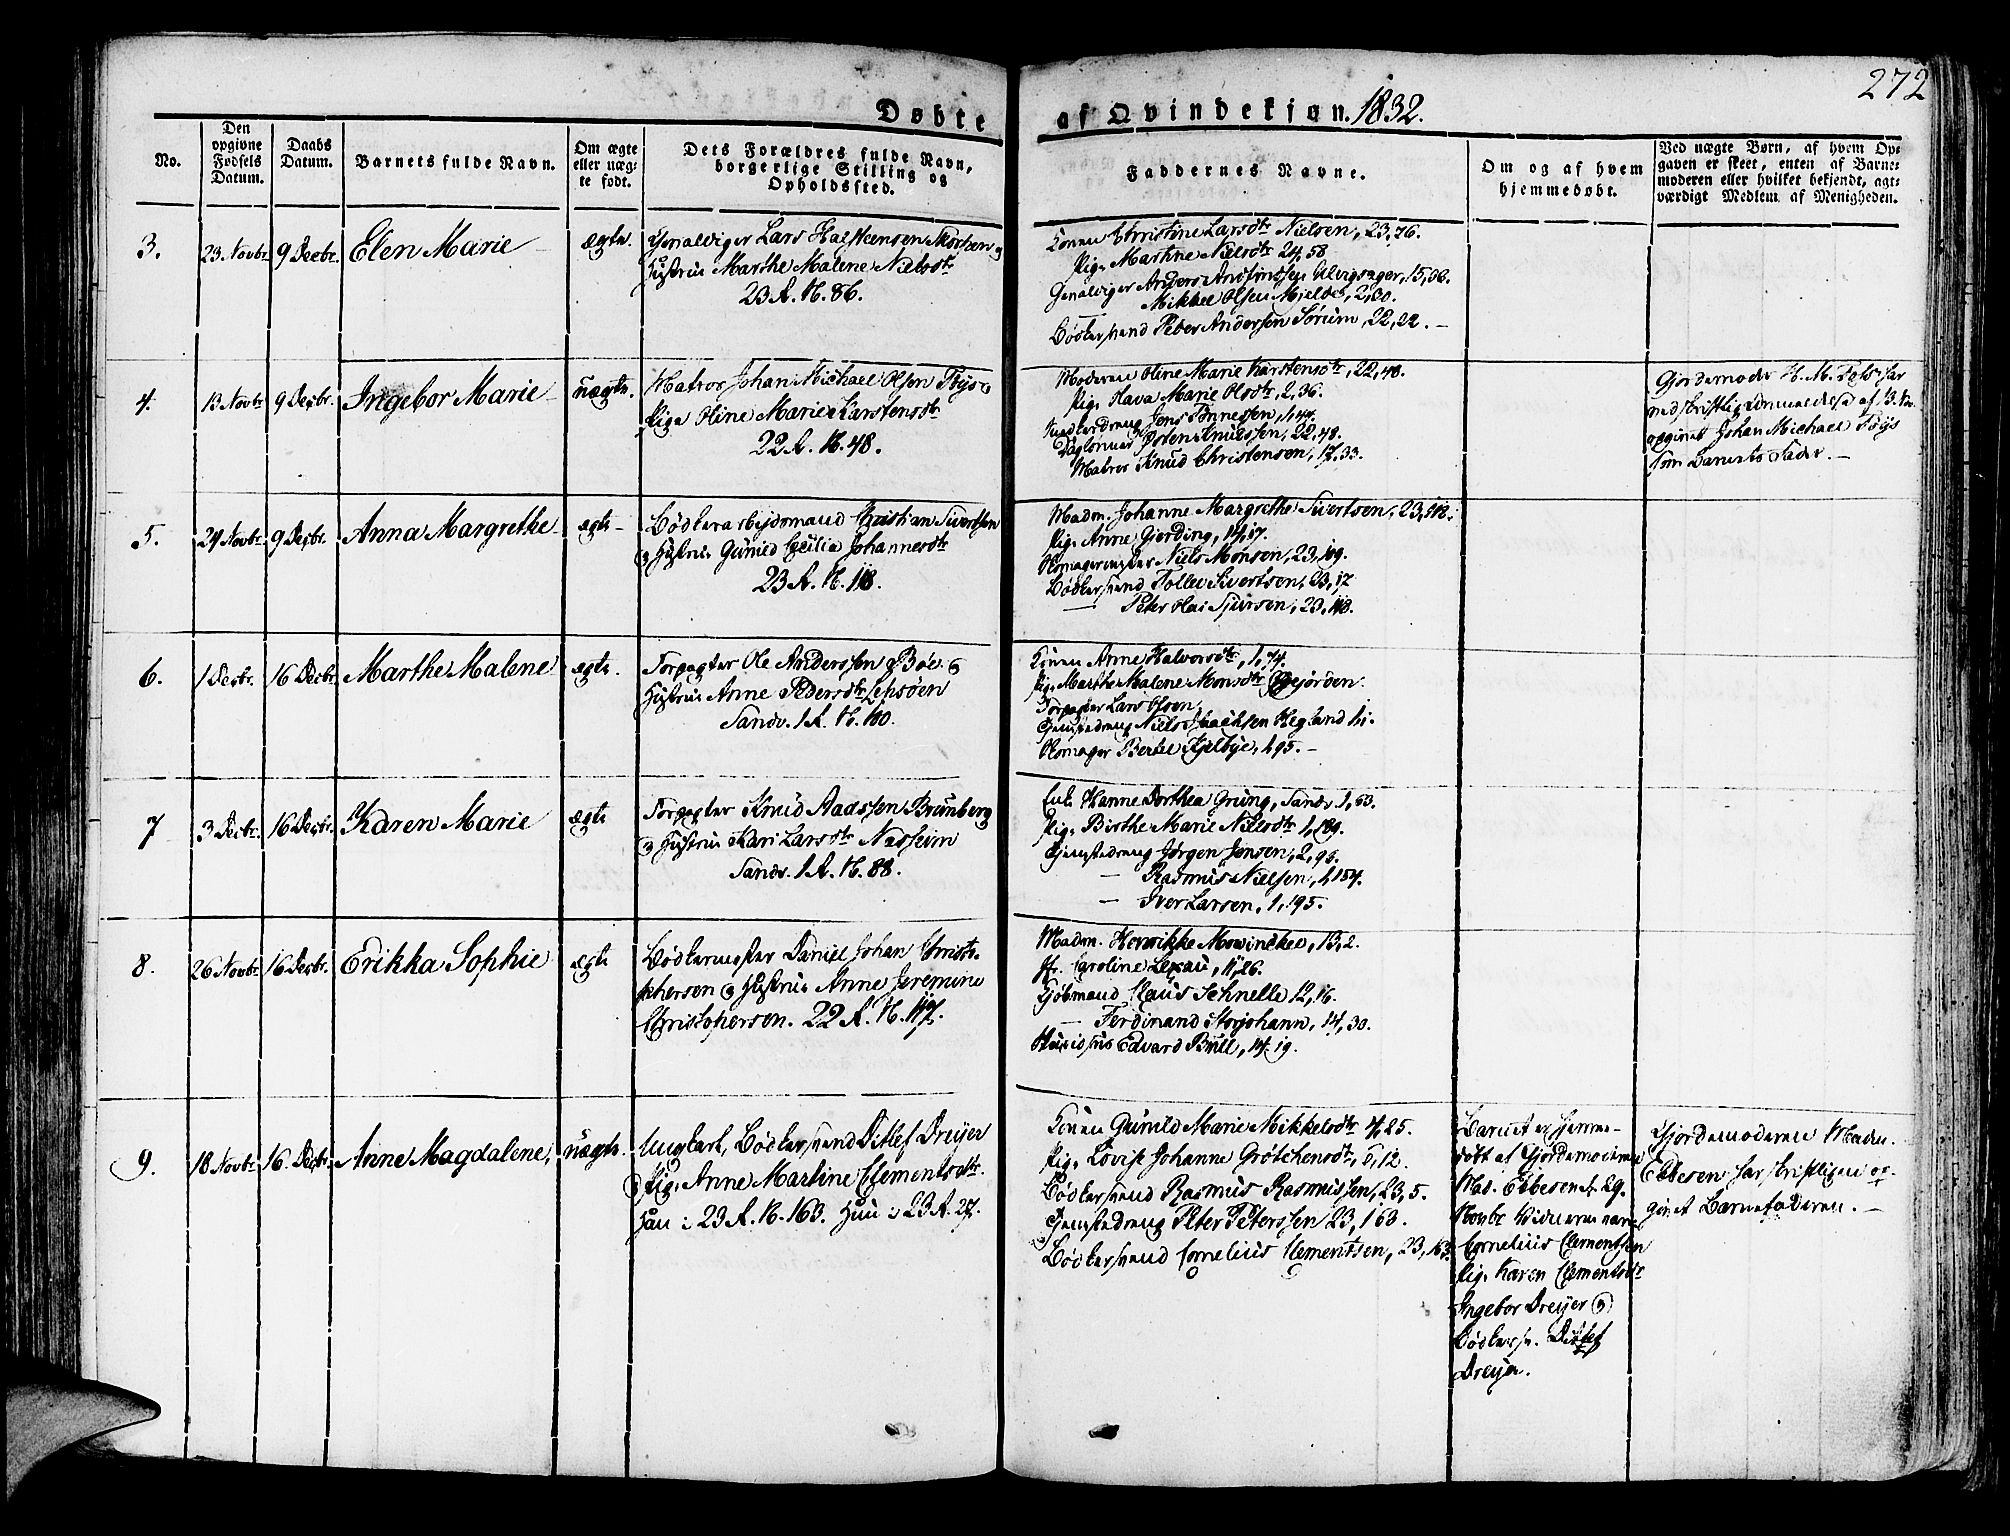 272
Døbte af Qvindekjøn. 1832.
No.
Den opgivne Fødsels Datum.
Daabs Datum.
Barnets fulde Navn.
Om ægte eller uægte født.
Dets Forældres fulde Navn, borgerlige Stilling og Opholdssted.
Faddernes Navne.
Om og af hvem hjemmedøbt.
Ved uægte Børn, af hvem Opgaven er skeet, enten af Barnemoderen eller hvilket bekjendt, agtværdigt Medlem af Menigheden.
3.
23 Novbr.
9 Decbr.
Elen Marie
ægte.
Lars Halsteensen
Hustrue Marthe Malene Nielsdtr
23 R. N. 86.
Konen Christine Larsdtr Nielsen, 23,76.
Pige Martine Nielsdtr 24,58
Anders
Mikkel Olsen Mjeldes, 2,30.
Bødkersvend Peder Andersen Sørum, 22,22. –
4.
13 Novbr.
9 Decbr.
Ingebor Marie
uægte.
Matros Johan Michael Olsen Föÿs
Pige Oline Marie Karstensdtr
22 R. N. 48.
Moderen Oline Marie Karstensdtr, 22,48.
Pige Olava Marie Olsdtr, 2,36.
Jens Tønnessen, 1,40.
Østen Knudssen, 22,48.
Matros Knud Christensen, 17,33.
Gjordemoder H. M.
opgivet Johan Michael Föÿs
som Barnets Fader. –
5.
24 Novbr.
9 Decbr.
Anna Margrethe
ægte
Bødkerarbeidsmand Christian Sivertsen
Hustrue Gunild Cecilia Johannesdtr
23 R. N. 118.
Madm. Johanne Margrethe Sivertsen, 23,118.
Pige Anne Gjerding, 14,17.
Niels Monsen, 23,109.
Bødkersvend Tollev Sivertsen, 23,17
— Peter Olai Sjursen, 23,118.
6.
1 Decbr.
16 Decbr.
Marthe Malene
ægte.
Ole Anderssen Böe
Hustrue Anne Pedersdtr Lepsöen
Sandv. 1 R. N. 100.
Konen Anne Halvorsdtr, 1,74.
Pige Marthe Malene Monsdtr
Lars Olsen,
Tjenestedreng Niels Hegland
Berthel Kjelbye, 1,95. –
7
3 Decbr.
16 Decbr.
Karen Marie
ægte
Knud Aadssen Brunberg
Hustrue Kari Larsdtr Nesheim
Sandv. 1 R. N. 88.
Hanne Dorthea Grung, Sandv 1,63.
Pige Birthe Marie Nielsdtr 1,189.
Tjenestedreng Jørgen Jensen, 2,96.
— Rasmus Nielsen, 1,184.
— Iver Larsen, 1,195.
8.
26 Novbr.
16 Decbr.
Erikka Sophie
ægte
Bødkermester Daniel Johan Christophersen
Hustrue Anne Jeremine
Christophersen. 22 R. N. 117.
Madm. Henrikke Mowinckel, 13,2.
Jfr. Caroline Lexau, 11,26.
Kjöbmand Claus Schnelle 12,16.
— Ferdinand Storjohann, 14,30.
Edvard Bull, 14,19.
9.
18 Novbr.
16. Decbr.
Anne Magdalene,
uægte.
Ungkarl, Bödkersvend Ditlef Dreÿer
Pige Anne Martine Clementsdtr.
Han: 23 R. N. 163. Hun: 23 R. 27.
Konen Gunild Marie Mikkelsdtr 4,25.
Pige Lovise Johanne Grötchensdtr,
Bödkersvend Rasmus Rasmussen, 23,5.
Tjenestedreng Peter Peterssen 23,163.
Bödkersvend Cornelius Clementsen, 23,163.
Barnet er hjemmedöbt af Gjordemoderen
Mad. Ebbesen d. 29.
Novbr Vidnerne vare
Cornelius Clementsen
Pige Karen Clementsdtr
Ingebor Dreÿer
Bödkersv. Ditlef
Dreÿer.
Gjordemoderen Madm.
Ebbesen har skriftligen opgivet Barnefaderen. –